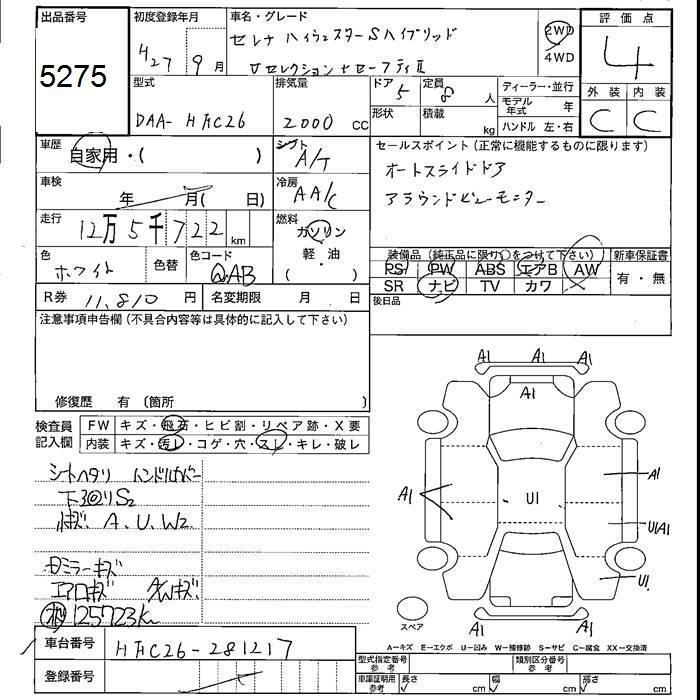 出品番号
5275
初度登録年月
H27年9月
車名・グレード
セレナ ハイウェスターSハイブリッド
Vセレクション+セーフティII
2WD
4WD
評価点
4
外装 内装
C C
型式
DAA-HFC26
排気量
2000 cc
ドア 5
定員 8 人
形状
積載 kg
ディーラー・並行
モデル年式 年
ハンドル 左・右
車歴
自家用・( )
シフト
A/T
セールスポイント(正常に機能するものに限ります)
オートスライドドア
アラウンドビューモニター
車検
年 月( 日)
冷房
AA/C
走行
12万5千722km
燃料
ガソリン
軽・油
( )
色
ホワイト
色替
色コード
QAB
装備品(純正品に限り○をつけて下さい)
PS PW ABS エアB AW
SR ナビ TV カワ
新車保証書
有・無
R券 11,810 円
名変期限 月 日
後日品
注意事項申告欄(不具合内容等は具体的に記入して下さい)
修復歴 有 (箇所 )
検査員記入欄
FW キズ・飛石・ヒビ割・リペア跡・X要
内装 キズ・汚レ・コゲ・穴・スレ・キレ・破レ
シートヘタリ ハンドルカバー
S2
A、U、W2
ミラーキズ
エアロキズ A/Wキズ
125723km
A1 A1 A1
A1
A1
A1
U1
U1A1
U1
A1 A1
スペア
A-キズ E-エクボ U-凹み W-補修跡 S-サビ C-腐食 XX-交換済
車台番号
HFC26-281217
登録番号
型式指定番号 参考
類別区分番号 参考
車庫証明用 参考
長さ cm
幅 cm
高さ cm